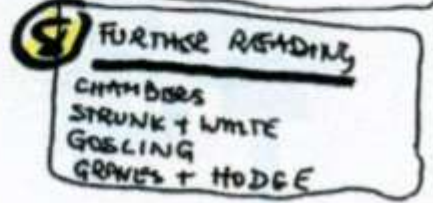 8 FURTHER READING
CHAMBERS
STRUNK + WHITE
GOSLING
GRAVES + HODGE